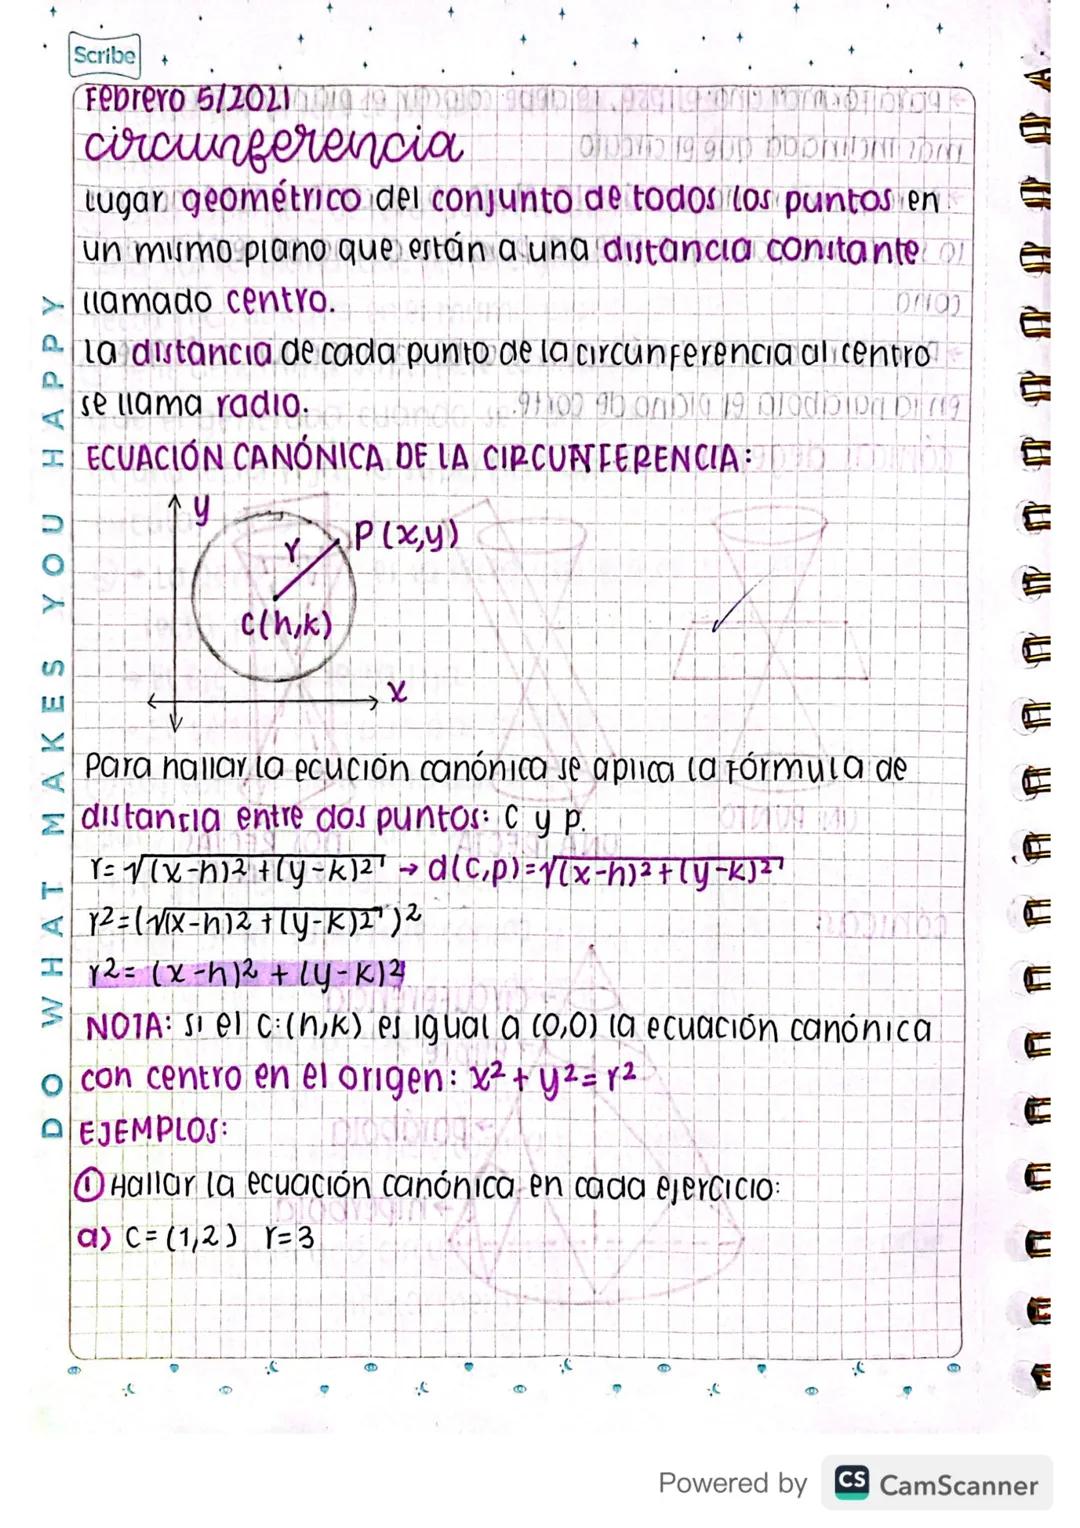 Scribe
Febrero 5/2021
circunferencia
Lugar geométrico del conjunto de todos los puntos en
un mismo plano que están a una distancia constante
llamado centro.
La distancia de cada punto de la circunferencia al centro
se llama radio.
ECUACIÓN CANÓNICA DE LA CIRCUNFERENCIA:
y
r
P(x,y)
C(h,k)
x
Para hallar la ecución canónica se aplica la fórmula de
distancia entre dos puntos: C y p.
r=√(x-h)2+(y-k)2 → d(C,p)=√(x-h)2+(y-k)2
r2=(√(x-h)2+(y-k)2)2
r2= (x-h)2 + (y-k)2
NOTA: si el C:(h,k) es igual a (0,0) la ecuación canónica
con centro en el origen: x2+y2=r2
EJEMPLOS:
① Hallar la ecuación canónica en cada ejercicio:
a) C=(1,2) r=3
DO WHAT MAKES YOU HAPPY
Powered by CS CamScanner